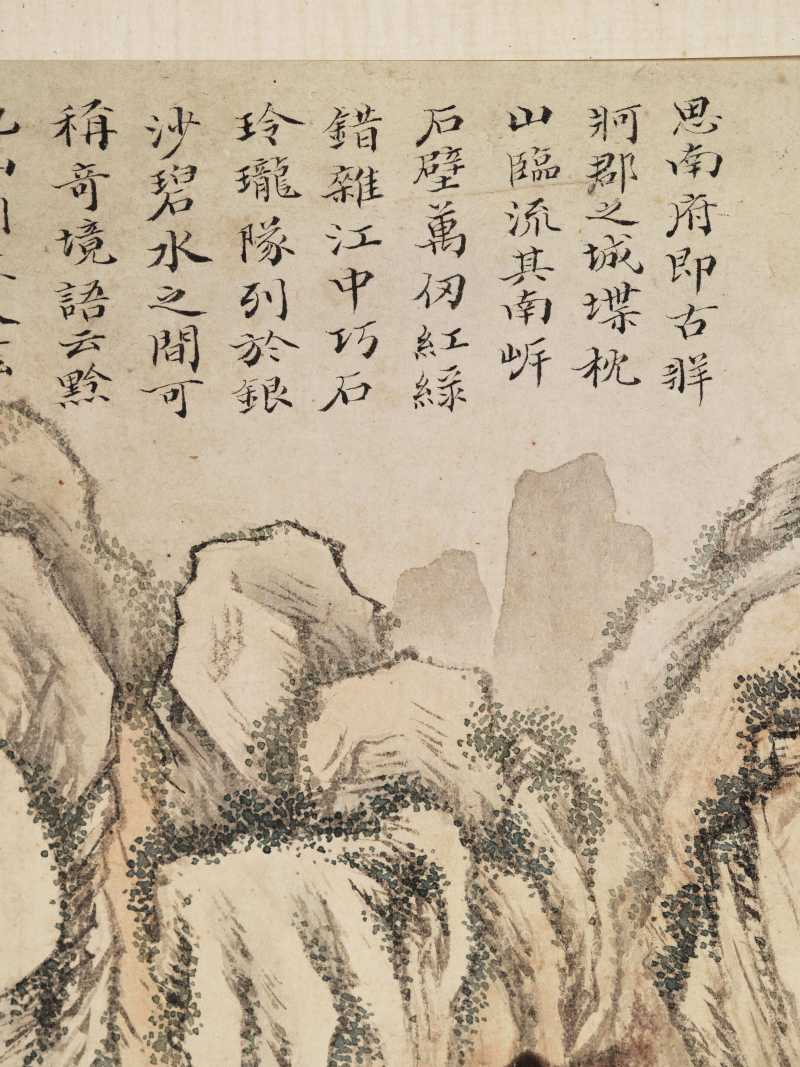 思南府即古牂
牁郡之城堞枕
山臨流其南岸
石壁萬仞紅綠
錯雜江中巧石
玲瓏隊列於銀
沙碧水之間可
稱奇境語云黔